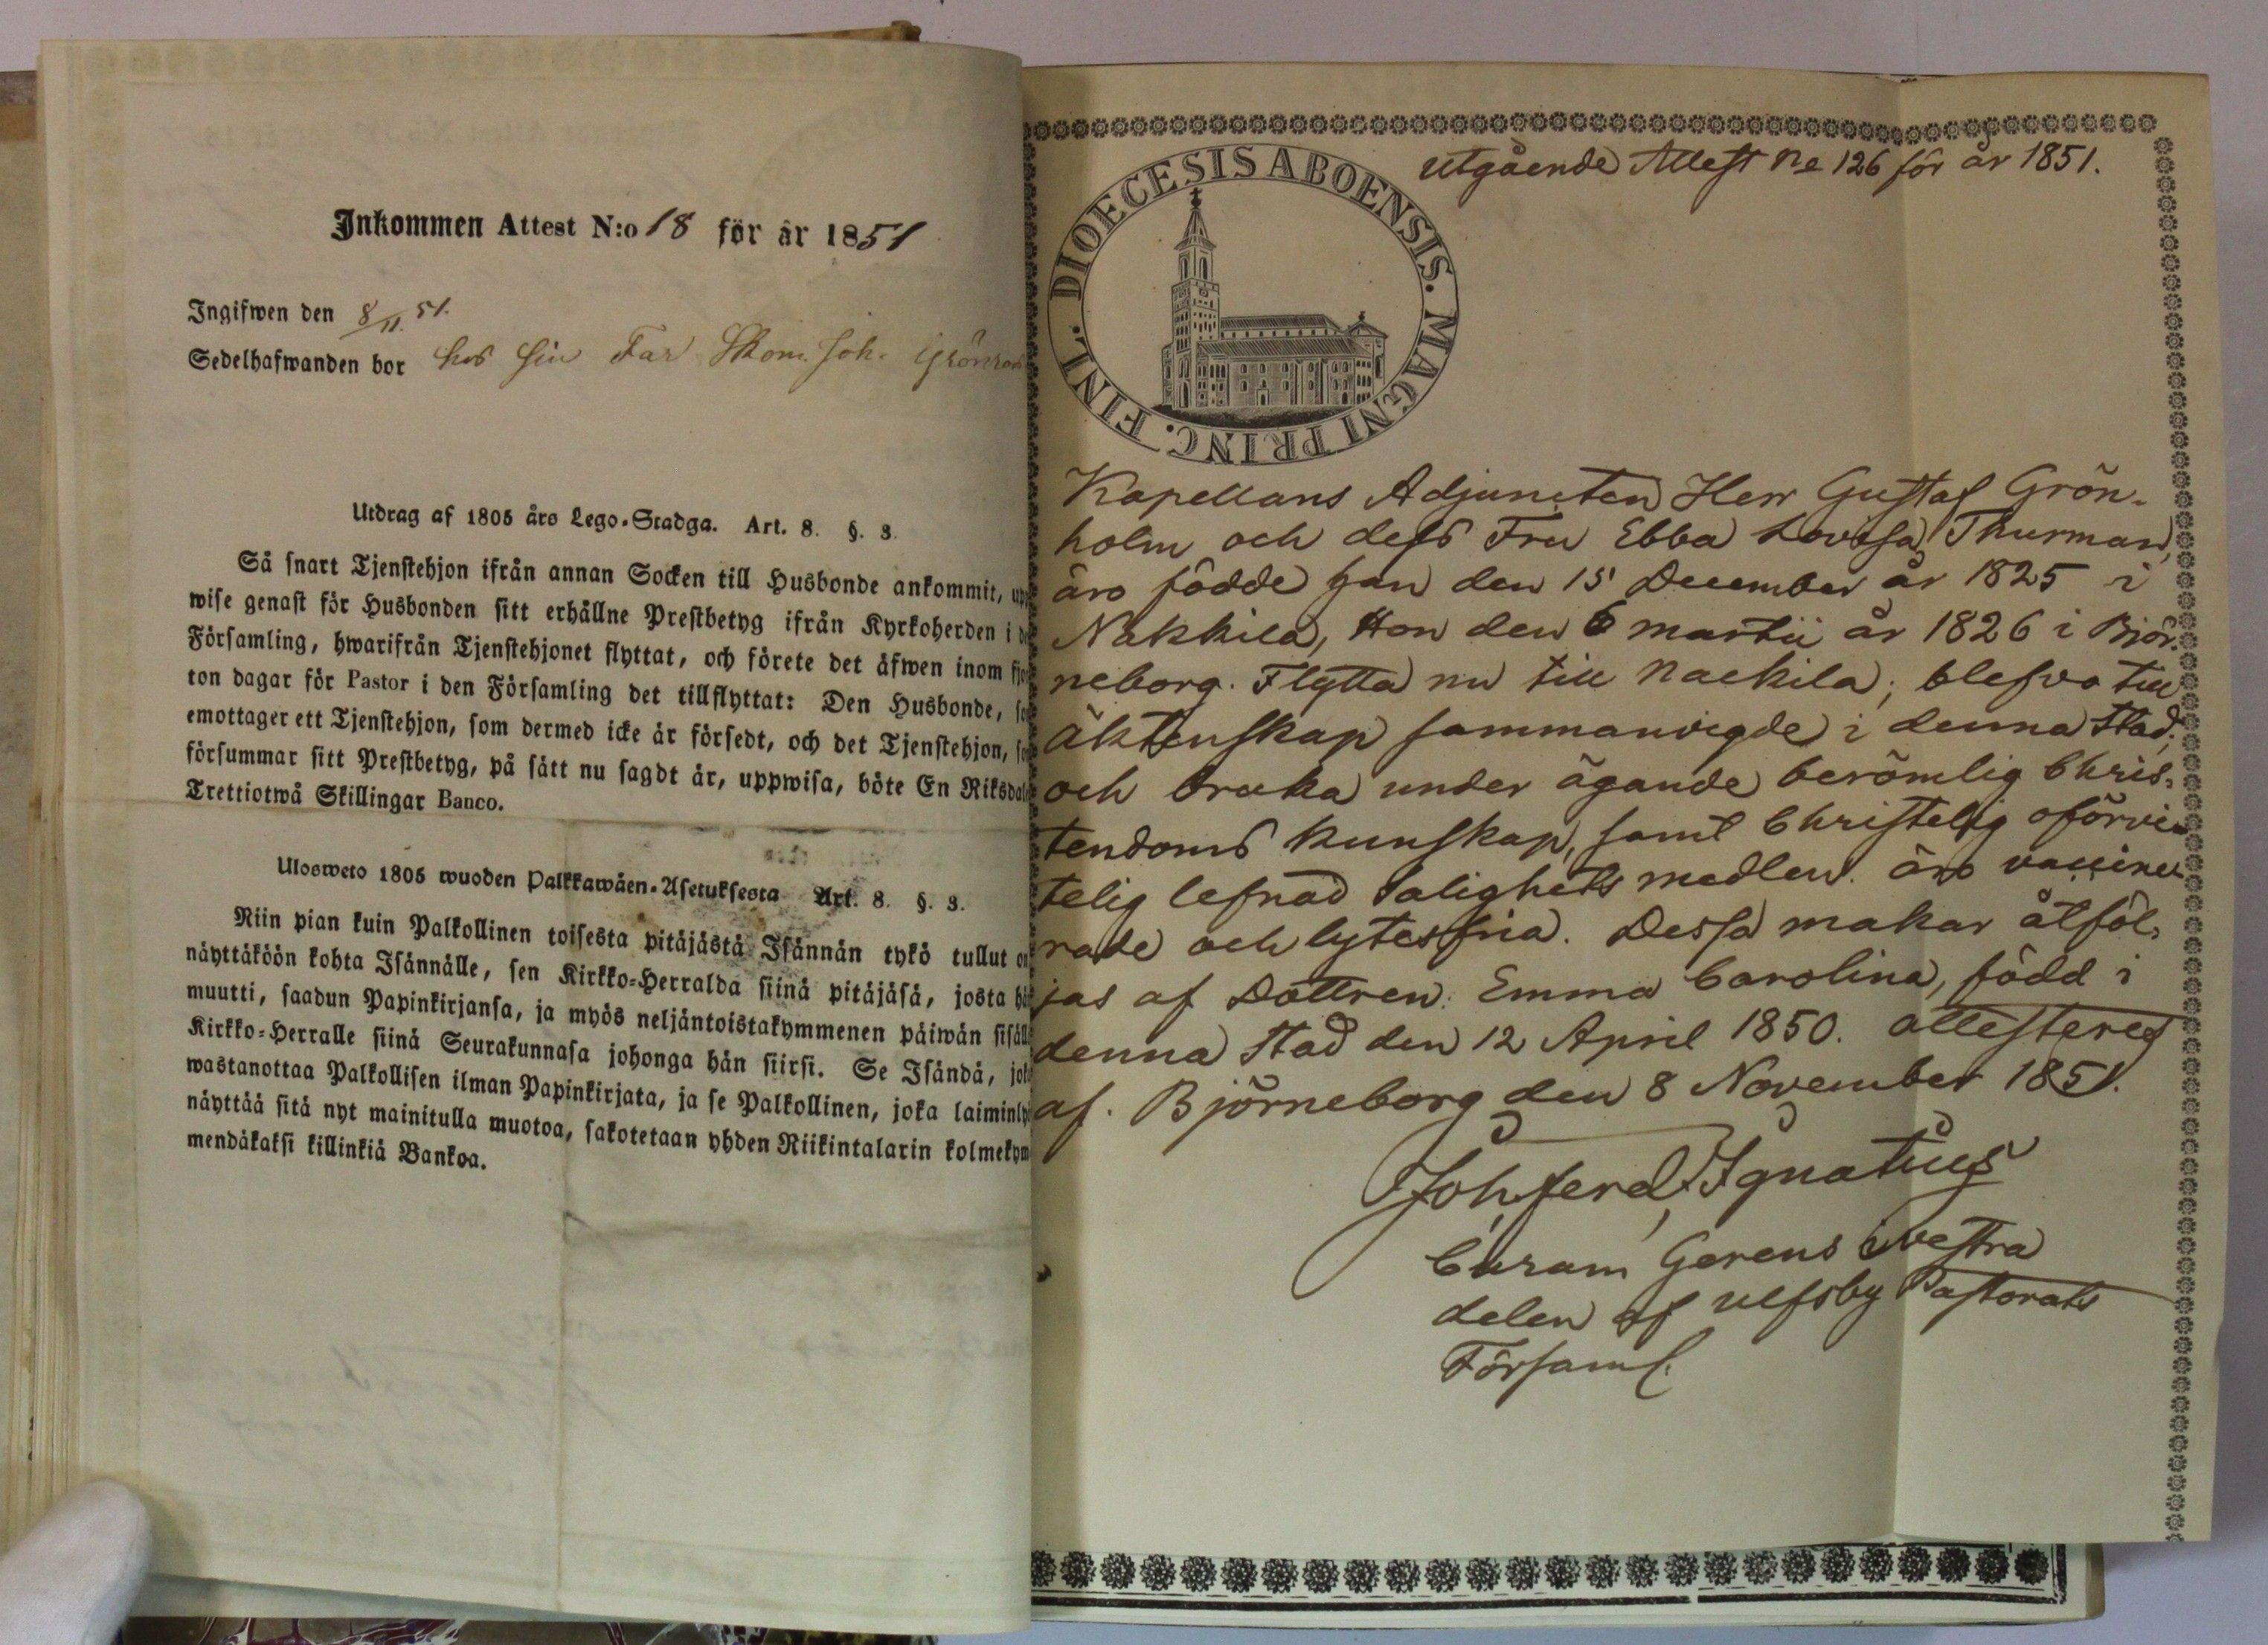 Inkommen Attest N:o 18 för år 1851
Ingifwen den 8/11. 51.
Sedelhafwanden bor hos sin Far Skom. Joh. Grönroos
Utdrag af 1805 års Lego-Stadga. Art. 8. §. 3.
Så snart Tjenstehjon ifrån annan Socken till Husbonde ankommit, upp
wise genast för Husbonden sitt erhållne Prestbetyg ifrån Kyrkoherden i de
Församling, hwarifrån Tjenstehjonet flyttat, och förete det äfwen inom fjo
ton dagar för Pastor i den Församling det tillflyttat: Den Husbonde, so
emottager ett Tjenstehjon, som dermed icke är försedt, och det Tjenstehjon, so
försummar sitt Prestbetyg, på sätt nu sagdt är, uppwisa, böte En Riksdal
Trettiotwå Skillingar Banco.
Ulosweto 1805 wuoden Palkkawäen-Asetuksesta Art. 8. §. 3.
Niin pian kuin Palkollinen toisesta pitäjästä Isännän tykö tullut on
näyttäköön kohta Isännälle, sen Kirkko-Herralda siinä pitäjäsä, josta hä
muutti, saadun Papinkirjansa, ja myös neljäntoistakymmenen päiwän sisäll
Kirkko-Herralle siinä Seurakunnasa johonga hän siirsi. Se Isändä, jok
wastanottaa Palkollisen ilman Papinkirjata, ja se Palkollinen, joka laiminly
näyttää sitä nyt mainitulla muotoa, sakotetaan yhden Riikintalarin kolmekym
mendäkaksi killinkiä Bankoa.
DIOECESIS ABOENSIS. MAGNI PRINC. FINL.
Utgående Attest No 126 för år 1851.
Kapellans Adjuncten Herr Gustaf Grön-
holm och dess Fru Ebba Lovisa Thurman,
äro födde han den 15 December år 1825 i
Nakkila, Hon den 6 martii år 1826 i Björ-
neborg. Flytta nu till Nackila; blefvo till
äktenskap sammanvigde i denna Stad;
och bruka under ägande berömlig Chris-
tendoms kunskap, samt Christelig oförvi-
telig lefnad Salighets medlen. äro vaccine-
rade och lytesfria. Dessa makar åtföl-
jas af Dottren: Emma Carolina, född i
denna Stad den 12 April 1850. attesteres
af. Björneborg den 8 November 1851.
Joh. Ferd. Ignatius
Curam Gerens i vestra
delen af Ulfsby Pastorats
Församl.